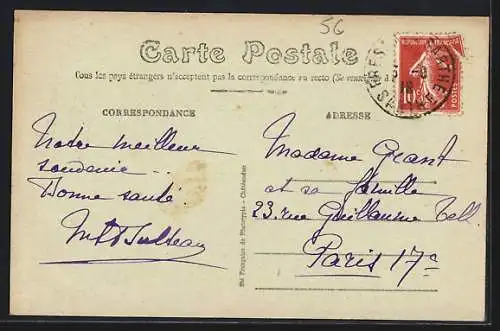 56
Carte Postale
Tous les pays étrangers n'acceptent pas la correspondance au recto (Se
CORRESPONDANCE
ADRESSE
Notre meilleur
souvenir..
Bonne santé
Madame Grant
et sa famille
23, rue Guillaume Tell
Paris 17e
Sté Française de Phototypie - Châteaudun
10c
POSTES